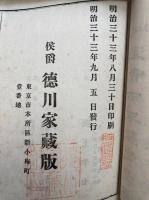 明治三十三年八月三十日印刷
明治三十三年九月五日發行
侯爵 德川家藏版
東京市本所區新小梅町
壹番地